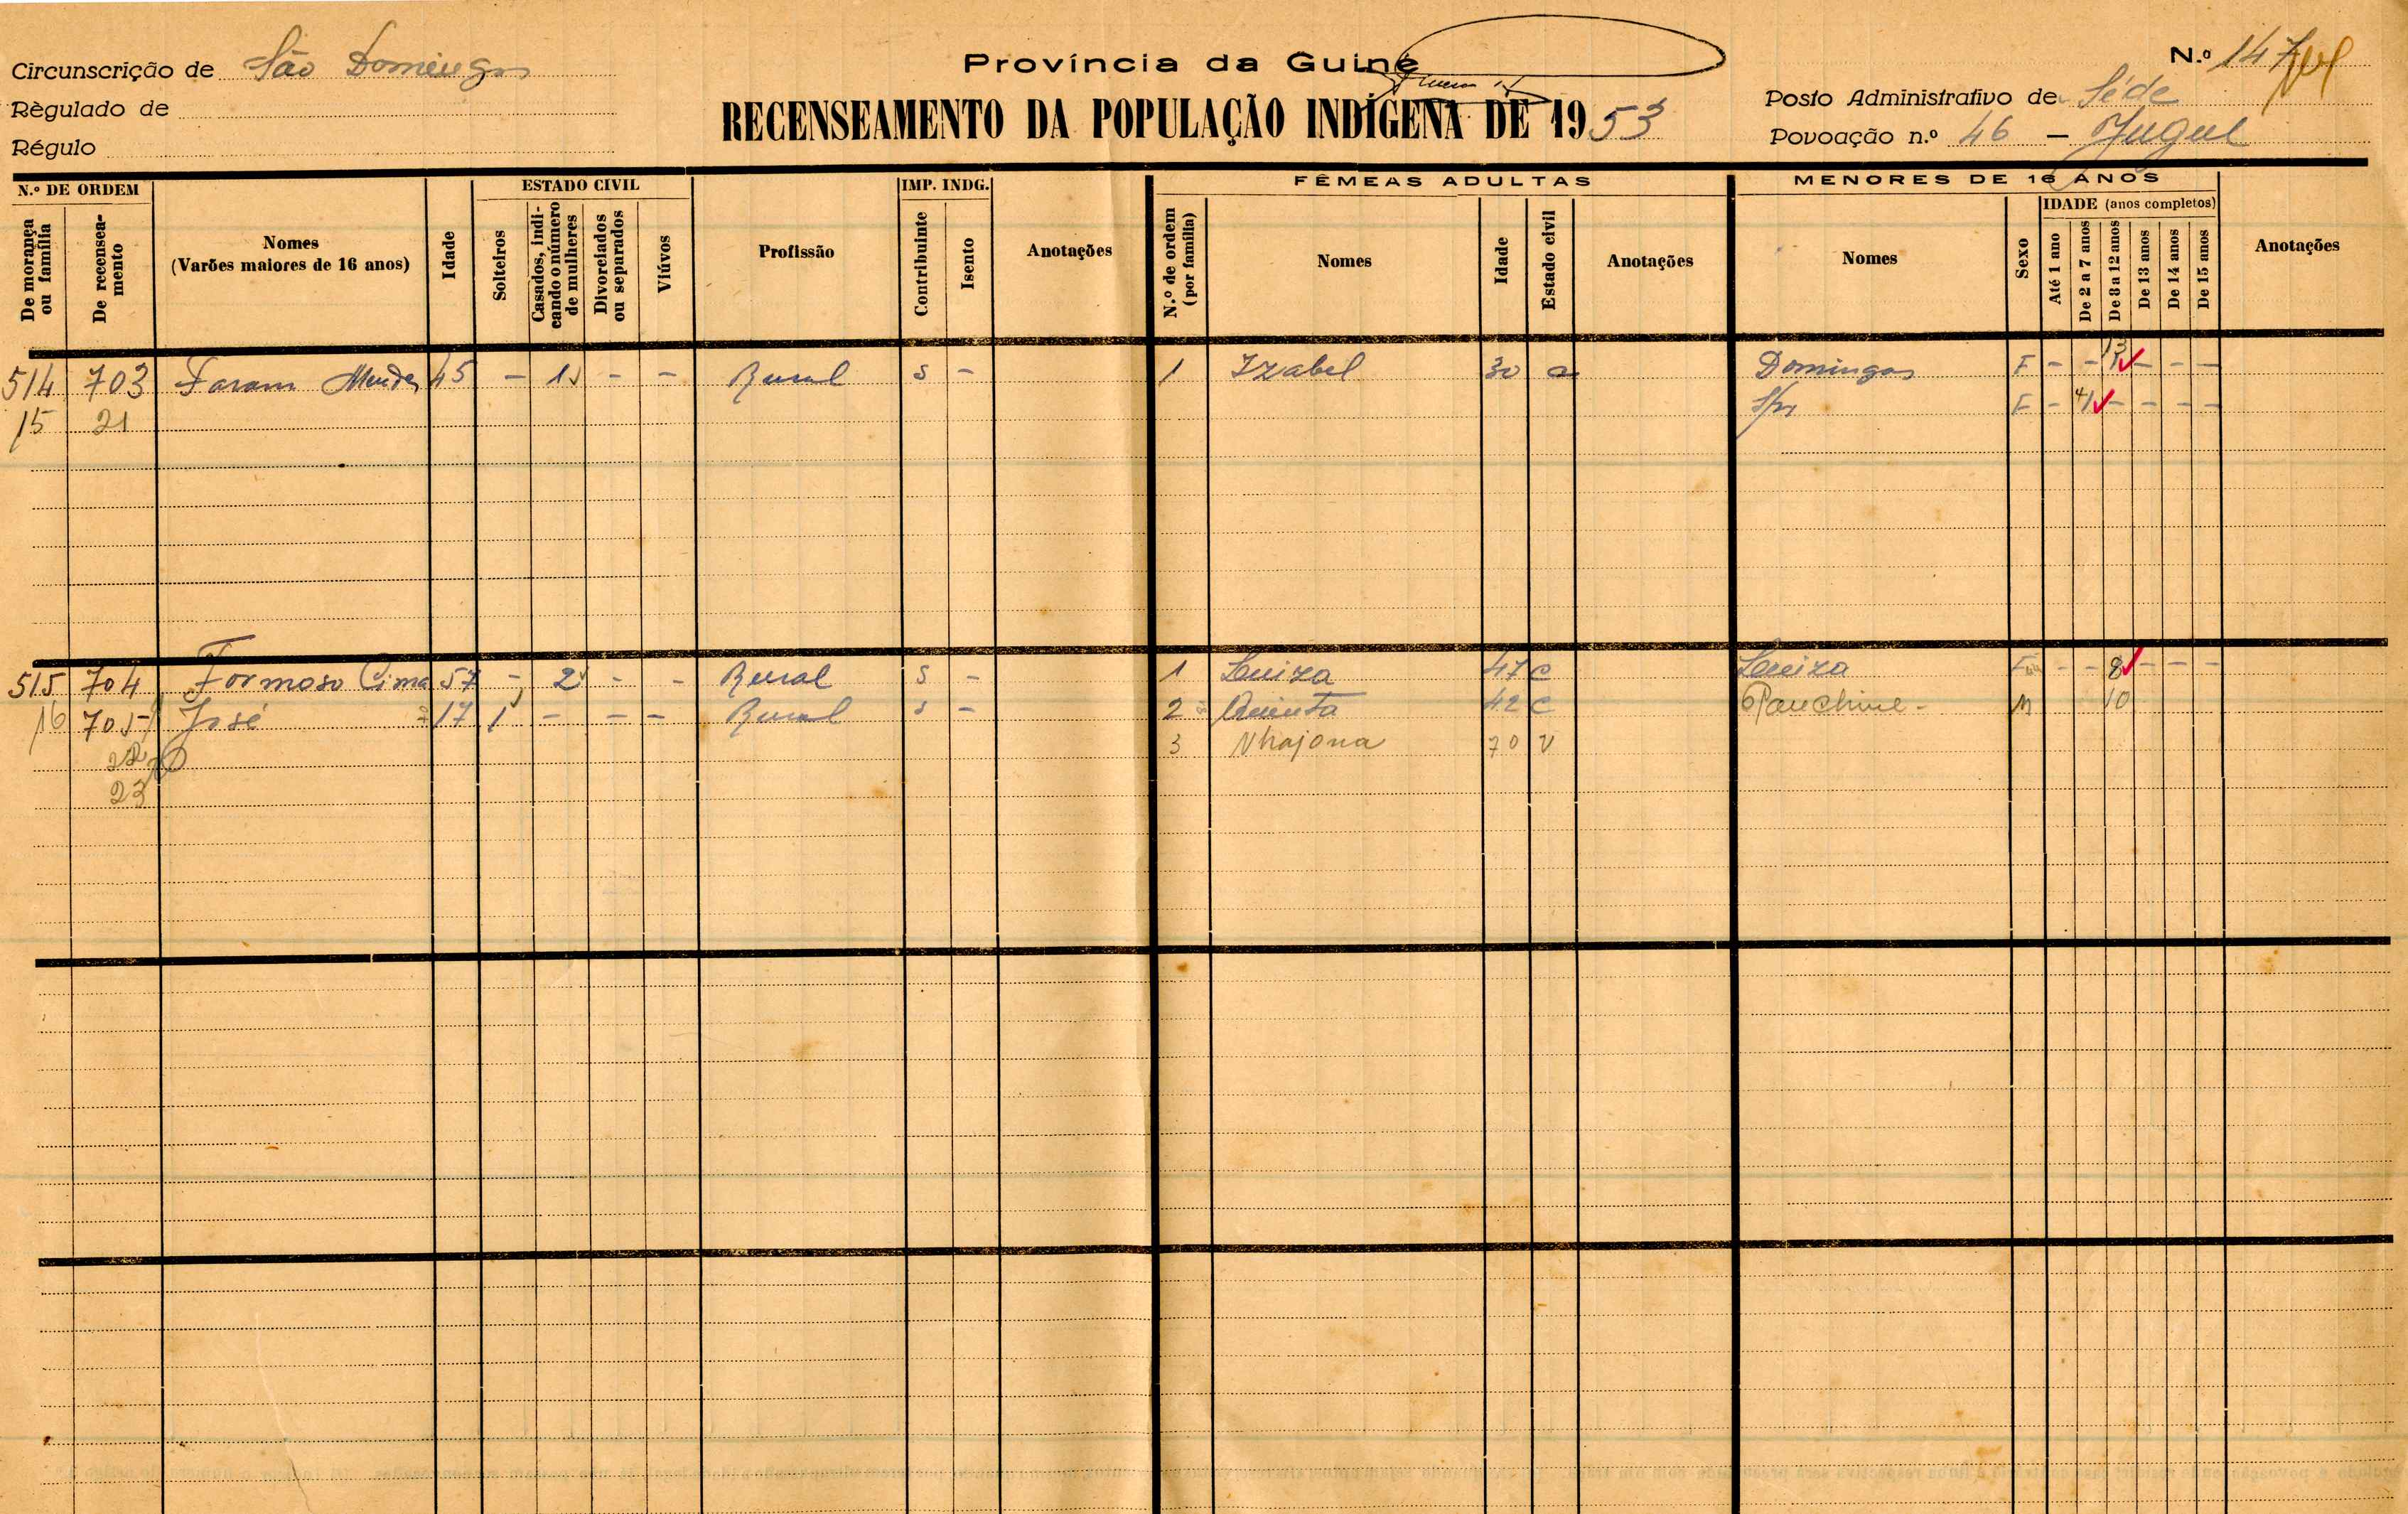 Província da Guiné
N.º 147
Circunscrição de São Domingos
Posto Administrativo de Séde
Règulado de
RECENSEAMENTO DA POPULAÇÃO INDÍGENA DE 1953
Povoação n.º 46 — Jugul
Régulo
N.º DE ORDEM
ESTADO CIVIL
IMP. INDG.
FÊMEAS ADULTAS
MENORES DE 16 ANOS
De morança ou família
De recenseamento
Nomes
(Varões maiores de 16 anos)
Idade
Solteiros
Casados, indicando o número de mulheres
Divorciados ou separados
Viúvos
Profissão
Contribuinte
Isento
Anotações
N.º de ordem (por família)
Nomes
Idade
Estado civil
Anotações
Nomes
Sexo
IDADE (anos completos)
Até 1 ano
De 2 a 7 anos
De 8 a 12 anos
De 13 anos
De 14 anos
De 15 anos
Anotações
514 703 Faram Mendes 45 - 1 - - Rural s - 1 Izabel 30 Domingas F - - 13 - - -
15 21 F - 4 - - - -
515 704 Formoso Cima 57 - 2 - - Rural s - 1 Luiza 47 c Luiza F - - 8 - - -
16 705 José 17 1 - - - Rural s - 2 Quinta 42 c M 10
22 3 Nhajona 70 V
23